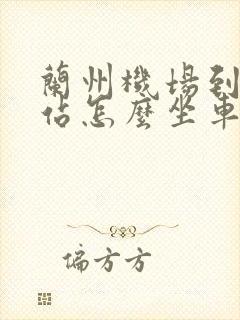 蘭州機場到
佔怎麼坐車
偏方方